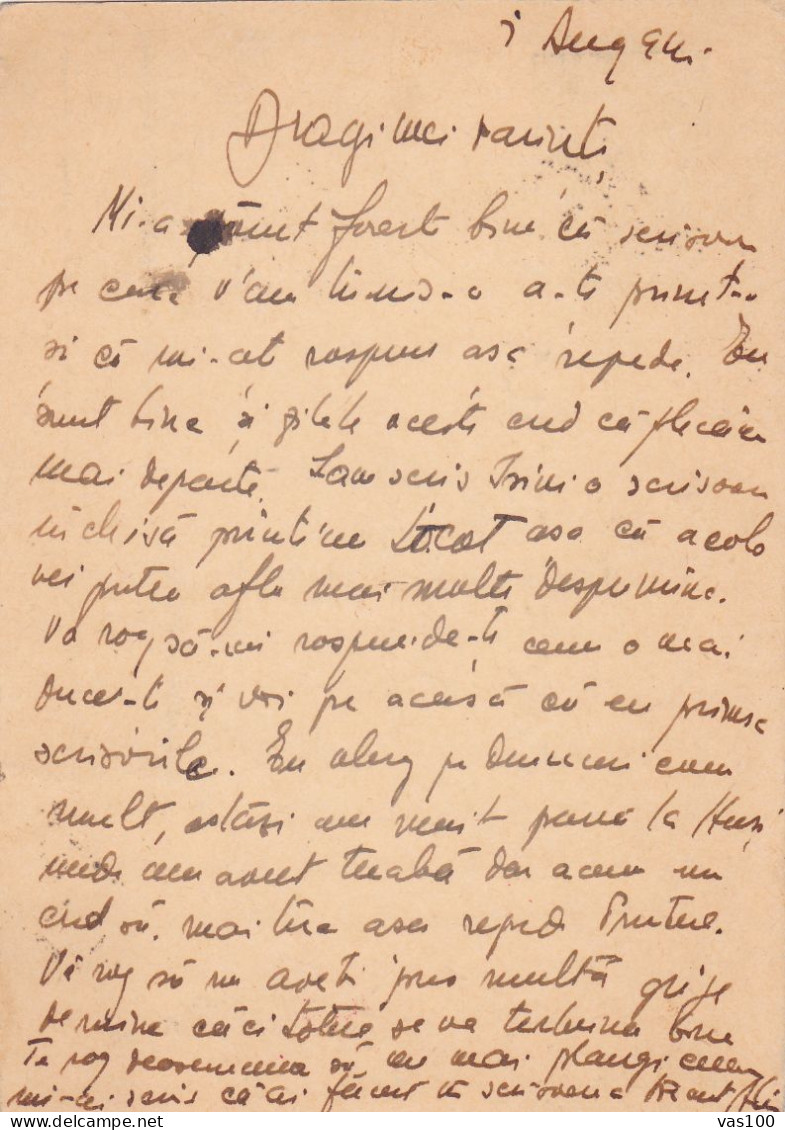 Aug 941
Dragi mei parinti
Mi-a părut foarte bine că scrisoarea
pe care v'am trimis-o a-ti primit-o
si că mi-ati raspuns asa repede. Eu
sunt bine si zilele aceste cred că plecăm
mai departe. I-am scris o scrisoare
inchisă printr'un asa că acolo
vei putea afla mai multe despre mine.
Va rog să-mi raspunde-ti cum o mai
duce-ti și voi pe acasă că eu primesc
scrisorile. Eu alerg pe drumuri cam
mult, astăzi am venit pana la Husi
unde am avut treabă dar acum nu
cred să mai trec asa repede Prutul.
Vă rog să nu aveti prea multă grije
de mine căci totul se va termina bine
Te rog deasemenea să nu mai plangi cum
mi-ai scris că ai făcut in scrisoarea
vas100